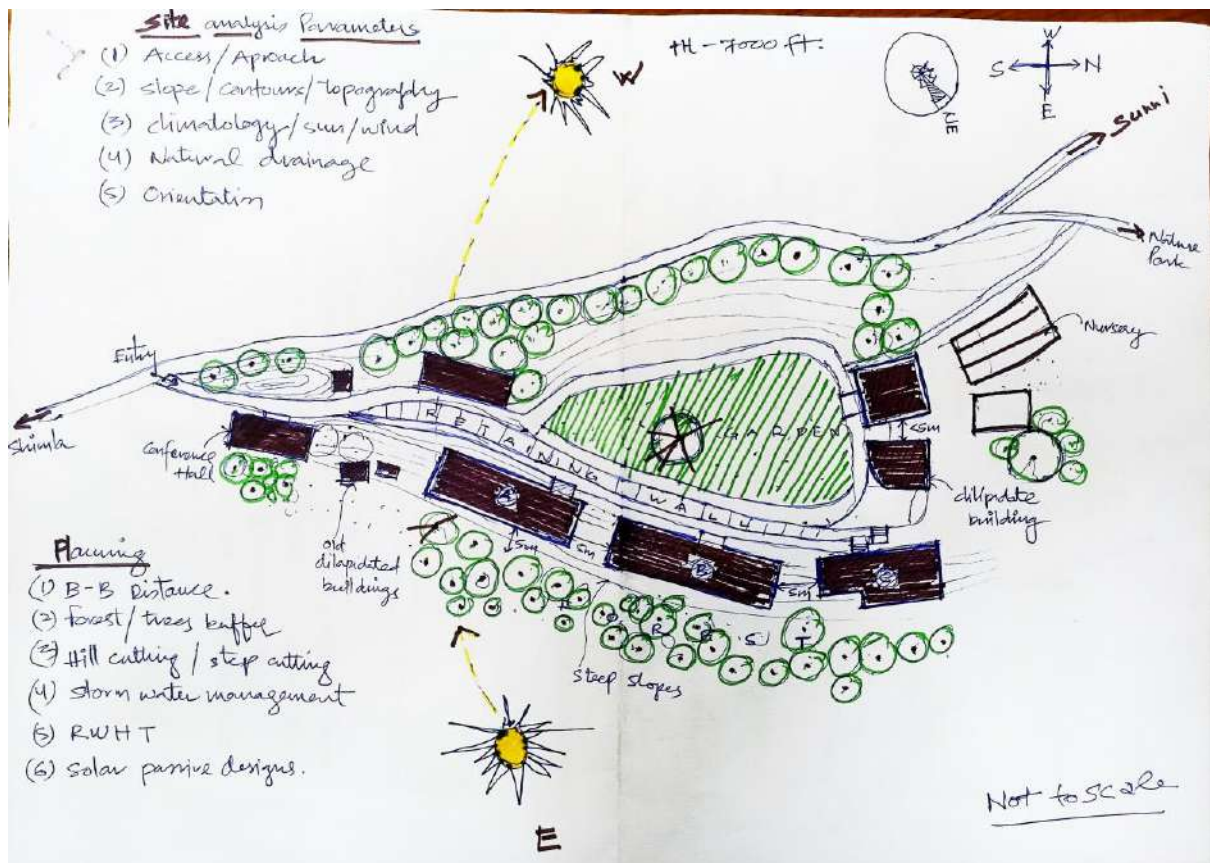 Site analysis Parameters
(1) Access/Aproach
(2) Slope/contours/topography
(3) climatology/sun/wind
(4) Natural drainage
(5) Orientation
W
Ht - 7000 ft.
NE
W
S N
E
Sunni
Nature
Park
Nursery
Entry
Shimla
Conference
Hall
RETAINING WALL
GARDEN
<5m
dilipidate
building
old
dilapidated
buildings
A
5m
5m
B
5m
C
FOREST
Steep slopes
Planning
(1) B-B Distance.
(2) forest/trees buffer
(3) Hill cutting / step cutting
(4) Storm water management
(5) RWHT
(6) Solar passive designs.
E
Not to scale